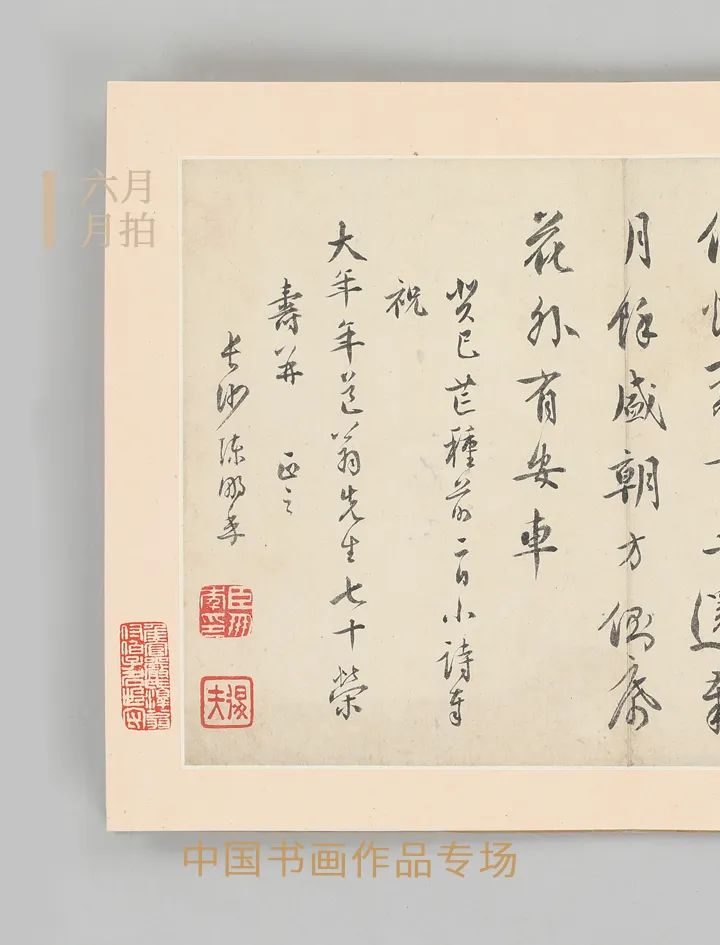 六月
月拍
月餘盛朝方側席
花外有安車
癸巳芒種前二日小詩奉
祝
大年年道翁先生七十榮
壽并 正之
長沙陳鵬年
中国书画作品专场